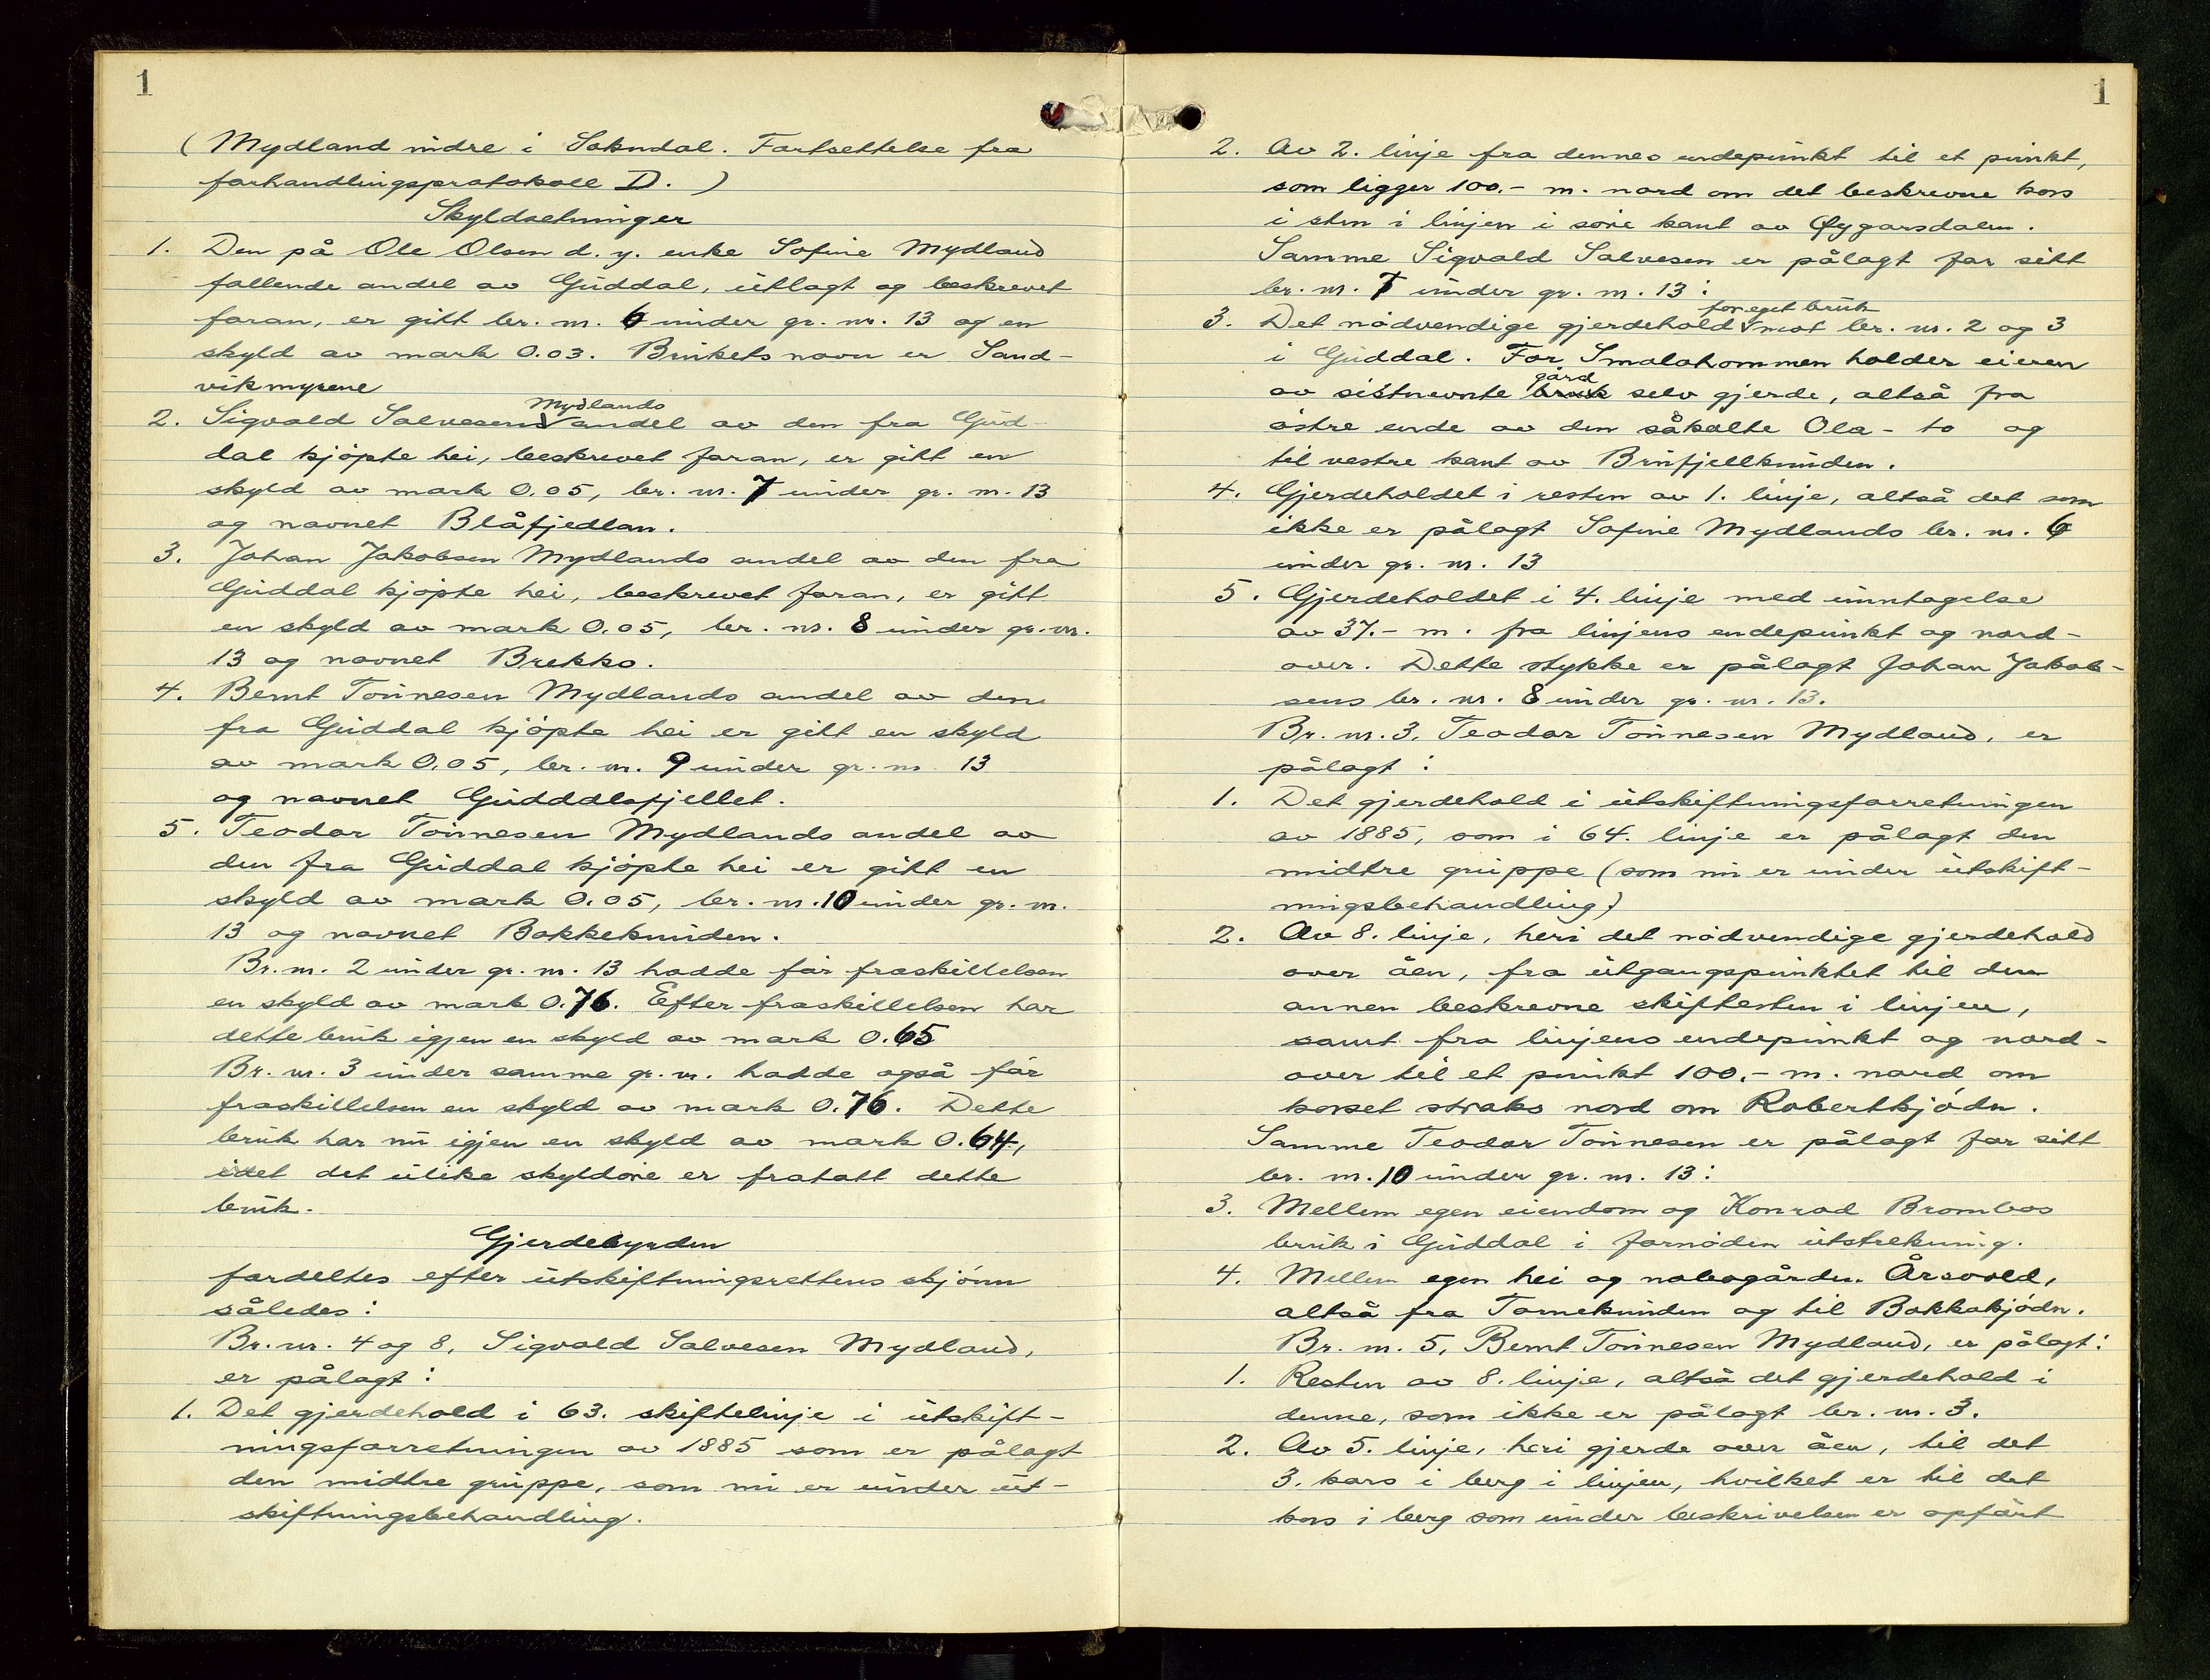 1
(Mydland indre i Sokndal. Fortsettelse fra
forhandlingsprotokoll D.)
Skyldsetninger
1. Den på Ole Olsen d. y. enke Sofine Mydland
fallende andel av Guddal, utlagt og beskrevet
foran, er gitt br. nr. 6 under gr. nr. 13 og en
skyld av mark 0.03. Brukets navn er Sand-
vikmyrene
Mydlands
2. Sigvald Salvesens andel av den fra Gud-
dal kjøpte hei, beskrevet foran, er gitt en
skyld av mark 0.05, br. nr. 7 under gr. nr. 13
og navnet Blåfjedlan.
3. Johan Jakobsen Mydlands andel av den fra
Guddal kjøpte hei, beskrevet foran, er gitt
en skyld av mark 0.05, br. nr. 8 under gr. nr.
13 og navnet Brekko.
4. Bernt Tønnesen Mydlands andel av den
fra Guddal kjøpte hei er gitt en skyld
av mark 0.05, br. nr. 9 under gr. nr. 13
og navnet Gudddlsfjellet.
5. Teodor Tønnesen Mydlands andel av
den fra Guddal kjøpte hei er gitt en
skyld av mark 0.05, br. nr. 10 under gr. nr.
13 og navnet Bakkeknuden.
Br. nr. 2 under gr. nr. 13 hadde før fraskillelsen
en skyld av mark 0.76. Efter fraskillelsen har
dette bruk igjen en skyld av mark 0.65
Br. nr. 3 under samme gr. nr. hadde også før
fraskillelsen en skyld av mark 0.76. Dette
bruk har nu igjen en skyld av mark 0.64,
idet det ulike skyldøre er fratatt dette
bruk.
Gjerdebyrden
fordeltes efter utskiftningsrettens skjønn
således:
Br. nr. 4 og 8, Sigvald Salvesen Mydland,
er pålagt:
1. Det gjerdehold i 63. skiftelinje i utskift-
ningsforretningen av 1885 som er pålagt
den midtre gruppe, som nu er under ut-
skiftningsbehandling.
1
2. Av 2. linje fra dennes endepunkt til et punkt,
som ligger 100.- m. nord om det beskrevne kors
i sten i linjen i søre kant av Øygarsdalen.
Samme Sigvald Salvesen er pålagt for sitt
br. nr. 7 under gr. nr. 13:
for eget bruk
3. Det nødvendige gjerdehold mot br. nr. 2 og 3
i Guddal. For Smalahommen holder eieren
gård
av sistnevnte bruk selv gjerde, altså fra
østre ende av den såkalte Ola-to og
til vestre kant av Brufjellknuden.
4. Gjerdeholdet i resten av 1. linje, altså det som
ikke er pålagt Sofine Mydlands br. nr. 6
under gr. nr. 13
5. Gjerdeholdet i 4. linje med unntagelse
av 37.- m. fra linjens endepunkt og nord-
over. Dette stykke er pålagt Johan Jakob-
sens br. nr. 8 under gr. nr. 13.
Br. nr. 3, Teodor Tønnesen Mydland, er
pålagt:
1. Det gjerdehold i utskiftningsforretningen
av 1885, som i 64. linje er pålagt den
midtre gruppe (som nu er under utskift-
ningsbehandling)
2. Av 8. linje, heri det nødvendige gjerdehold
over åen, fra utgangspunktet til den
annen beskrevne skiftesten i linjen,
samt fra linjens endepunkt og nord-
over til et punkt 100.- m. nord om
korset straks nord om Robertkjødn.
Samme Teodor Tønnesen er pålagt for sitt
br. nr. 10 under gr. nr. 13:
3. Mellem egen eiendom og Konrad Brombos
bruk i Guddal i fornøden utstrekning.
4. Mellem egen hei og nabogården Årsvold,
altså fra Torneknuden og til Bakkakjødn.
Br. nr. 5, Bernt Tønnesen Mydland, er pålagt:
1. Resten av 8. linje, altså det gjerdehold i
denne, som ikke er pålagt br. nr. 3.
2. Av 5. linje, heri gjerde over åen, til det
3. kors i berg i linjen, hvilket er til det
kors i berg som under beskrivelsen er opført